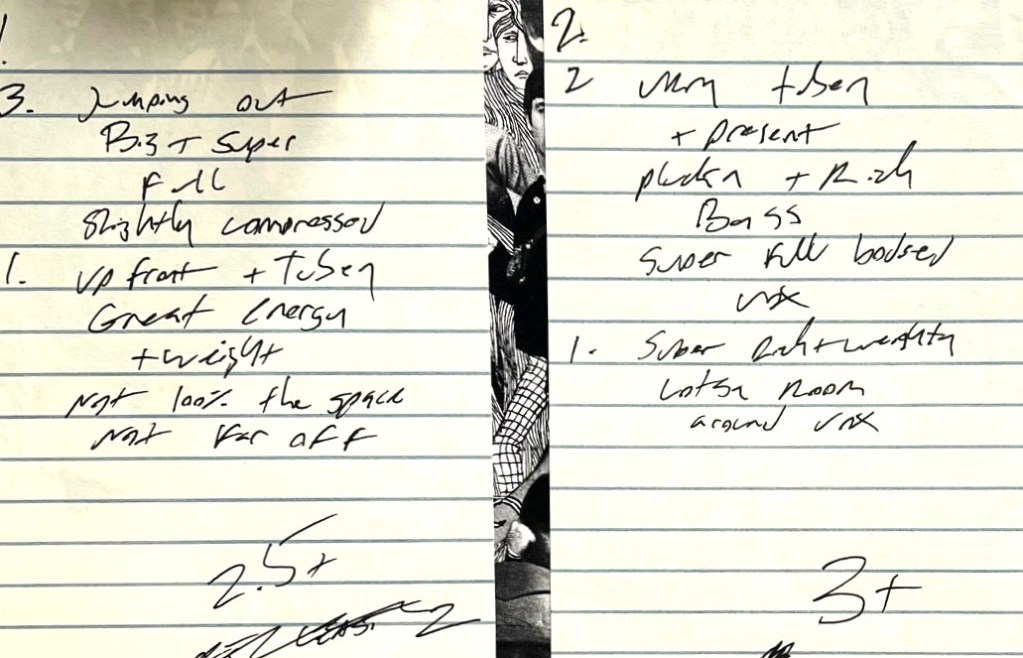 1.
3. Jumping out
Big + super
full
slightly compressed
1. up front + Tubey
Great energy
+ weight
Not 100% the space
Not far off
2.5+
2
2.
2 Very tubey
+ present
plucky + Rich
Bass
super full bodied
vox
1. Super Rich + weighty
Lotsa Room
around vox
3+